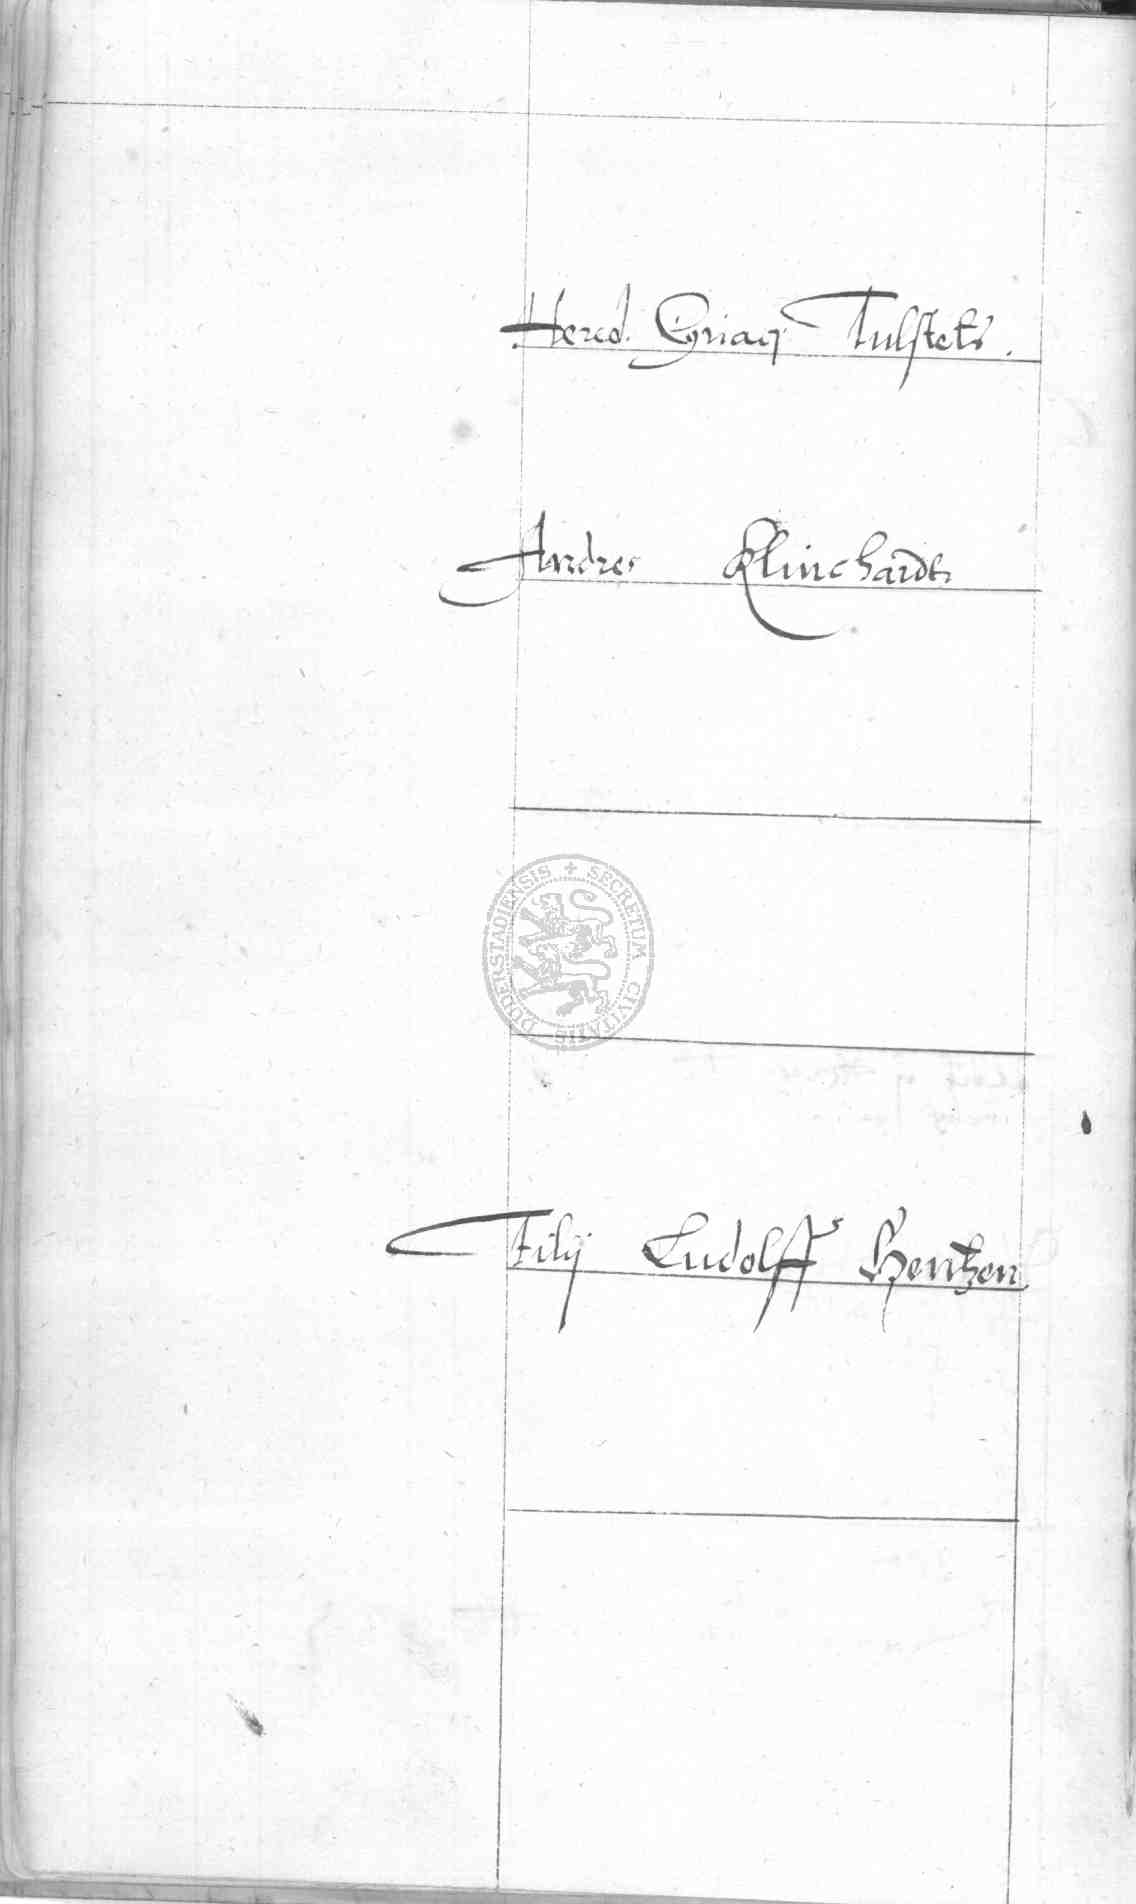 Hered. Cyriaci Tulstets.
Andres Klinchardt
SECRETUM CIVITATIS DUDERSTADIENSIS
Filij Ludolff Hentzen